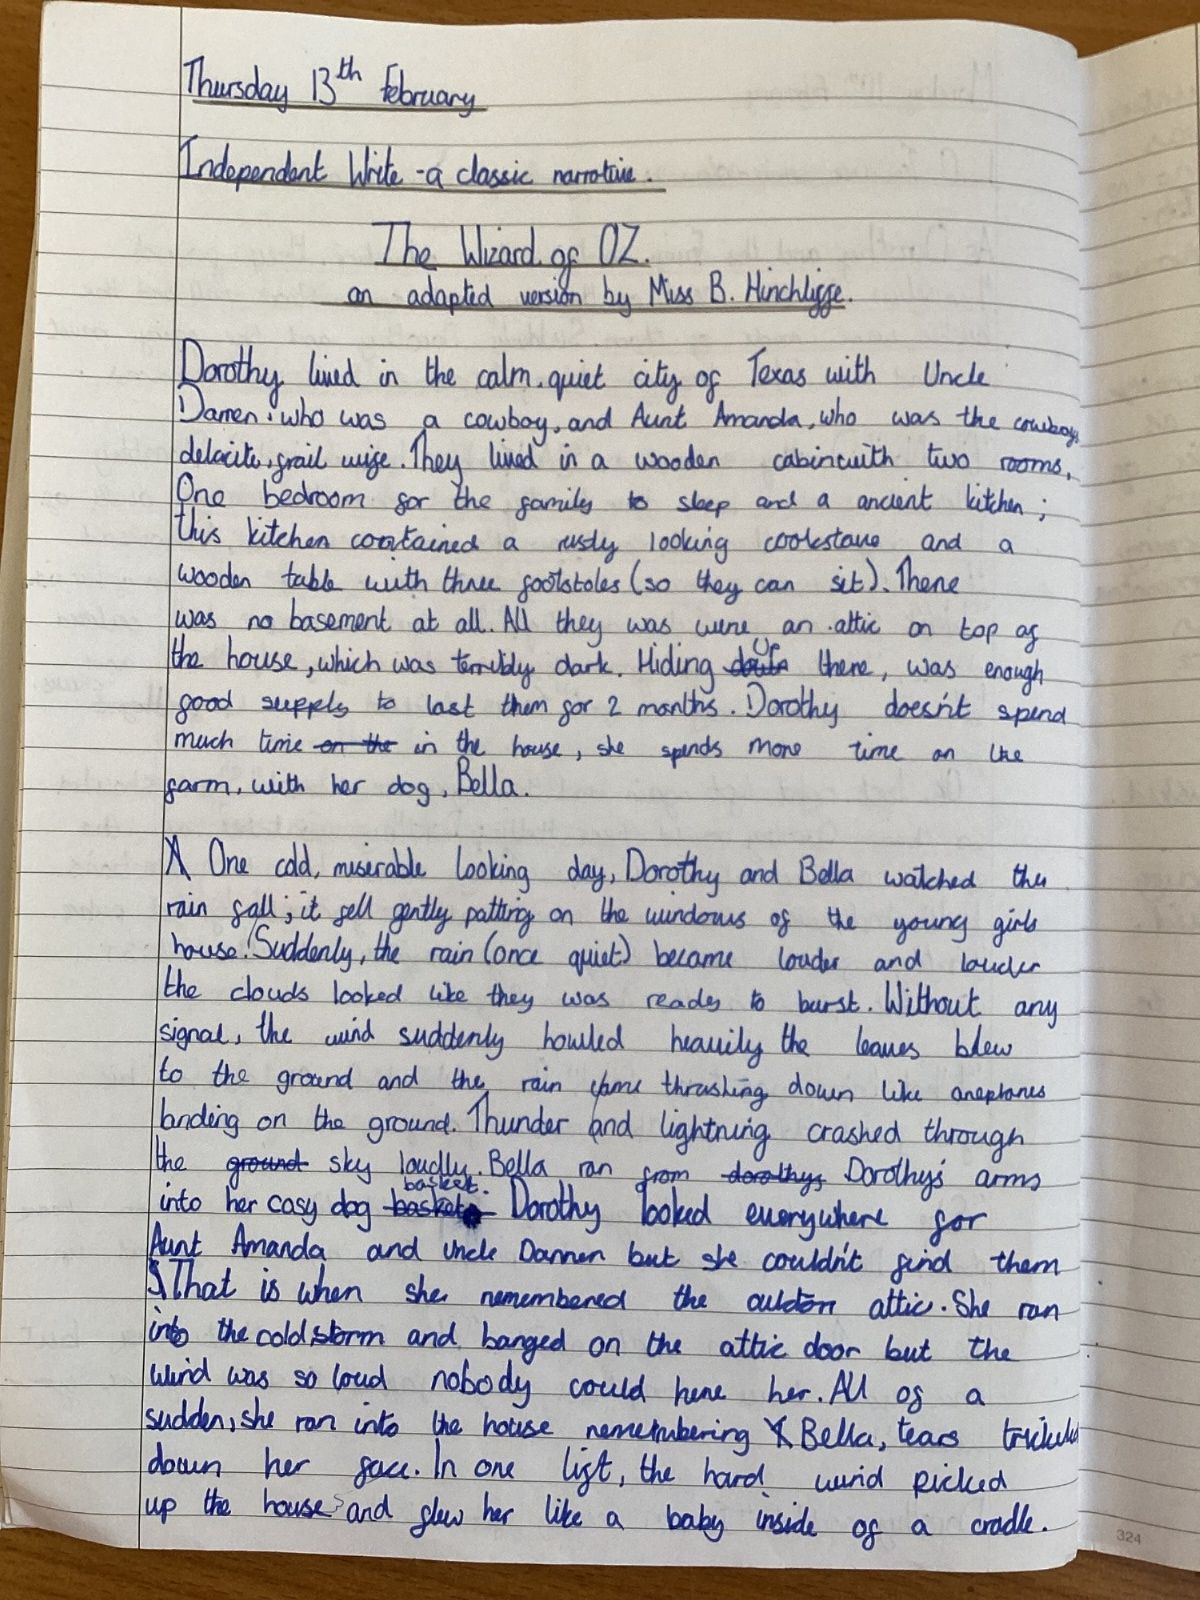 Thursday 13th February
Independent Write - a classic narrative.
The Wizard of OZ.
an adapted version by Miss B. Hinchliffe.
Dorothy lived in the calm, quiet city of Texas with Uncle
Darren, who was a cowboy, and Aunt Amanda, who was the cowboys
delacite, frail wife. They lived in a wooden cabin with two rooms.
One bedroom for the family to sleep and a ancient kitchen;
this kitchen contained a rusty looking cookstove and a
wooden table with three footstoles (so they can sit). There
was no basement at all. All they was were an attic on top of
the house, which was terribly dark. Hiding up there, was enough
good supply to last them for 2 months. Dorothy doesn't spend
much time on the in the house, she spends more time on the
farm, with her dog, Bella.
One cold, miserable looking day, Dorothy and Bella watched the
rain fall; it fell gently patting on the windows of the young girls
house. Suddenly, the rain (once quiet) became louder and louder
the clouds looked like they was ready to burst. Without any
signal, the wind suddenly howled heavily the leaves blew
to the ground and the rain came thrashing down like aneplanes
landing on the ground. Thunder and lightning crashed through
the ground sky loudly. Bella ran from dorothys Dorothy's arms
into her cosy dog basket. Dorothy looked everywhere for
Aunt Amanda and Uncle Darren but she couldn't find them
That is when she remembered the attic. She ran
into the cold storm and banged on the attic door but the
wind was so loud nobody could here her. All of a
sudden, she ran into the house remembering Bella, tears trickled
down her face. In one lift, the hard wind picked
up the house and flew her like a baby inside of a cradle.
324